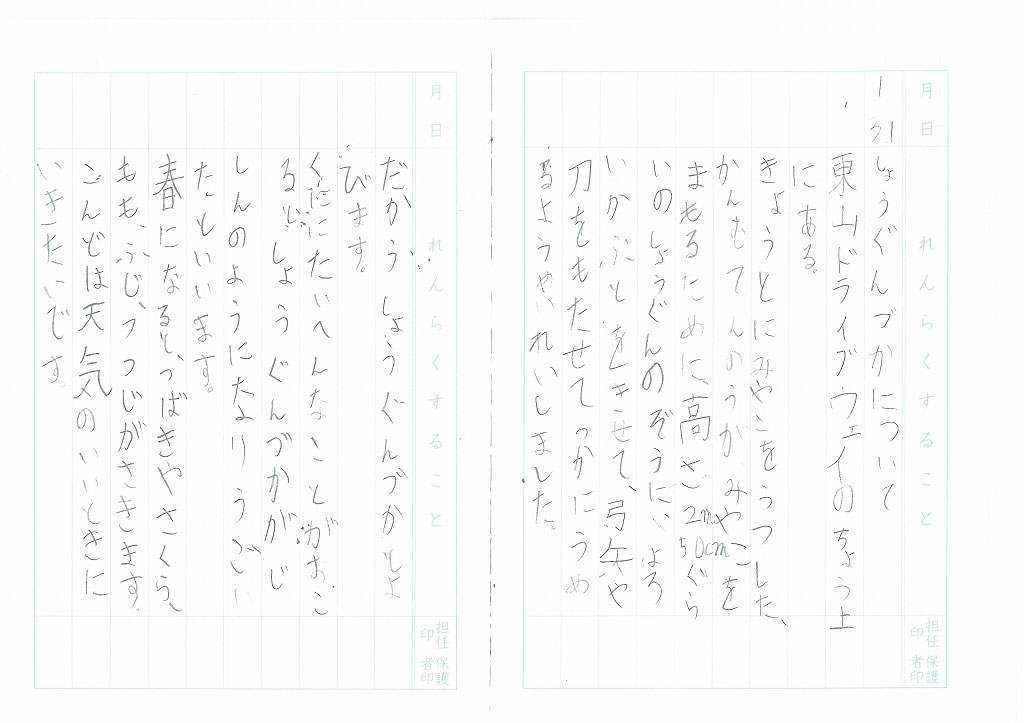 月日 れんらくすること 担任印 保護者印
1/31 しょうぐんづかについて
東山ドライブウェイのちょう上
にある。
きょうとにみやこをうつした、
かんむてんのうが、みやこを
まもるために、高さ2m50cmぐら
いのしょうぐんのぞうに、よろ
いかぶとをきせて、弓矢や
刀をもたせてつかにうめ
るようめいれいしました。
月日 れんらくすること 担任印 保護者印
だから、しょうぐんづかとよ
びます。
くににたいへんなことがおこ
ると、しょうぐんづかがじ
しんのようになりうごい
たといいます。
春になると、つばきやさくら、
もも、ふじ、つつじがさきます。
こんどは天気のいいときに
いきたいです。